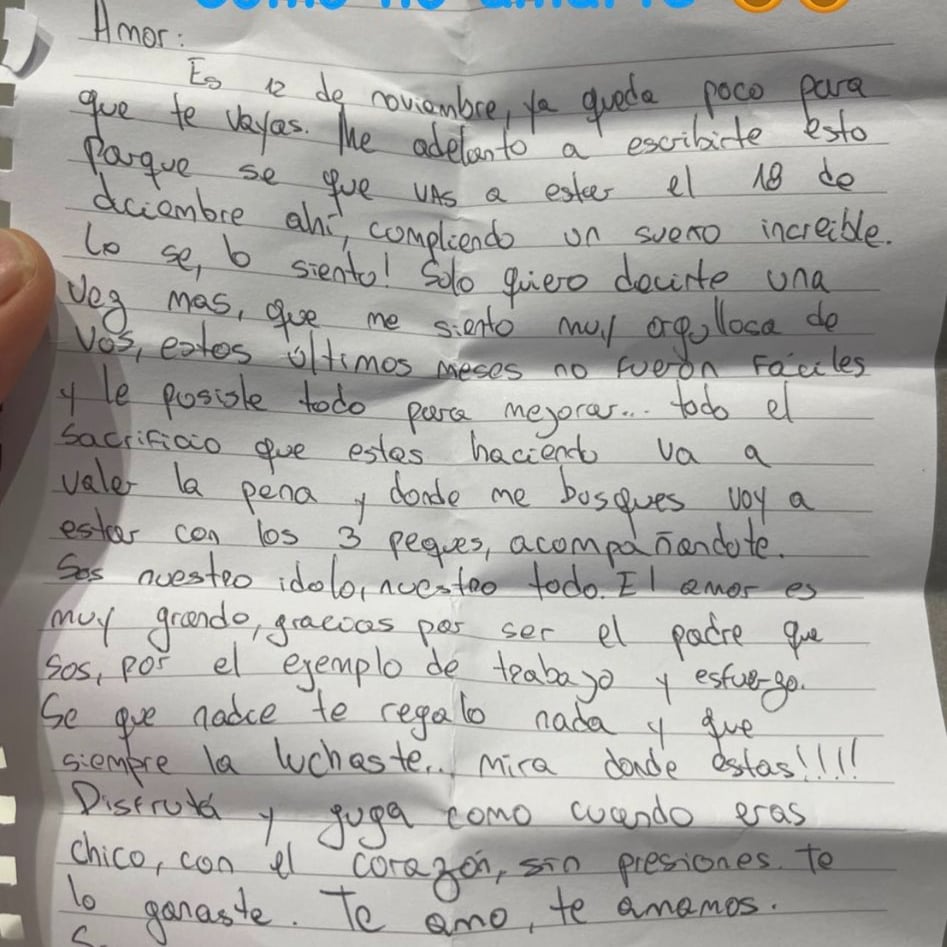 Como no amarte
Amor:
Es 12 de noviembre, ya queda poco para
que te vayas. Me adelanto a escribirte esto
porque se que VAS a estar el 18 de
diciembre ahí, compliendo un sueno increible.
Lo se, lo siento! Solo quiero decirte una
vez mas, que me siento muy orgullosa de
Vos, estos últimos meses no fueron Fáciles
y le pusiste todo para mejorar... todo el
sacrificio que estas haciendo va a
valer la pena y donde me busques voy a
estar con los 3 peques, acompañandote.
Sos nuestro idolo, nuestro todo. El amor es
muy grande, gracias por ser el padre que
sos, por el ejemplo de trabajo y esfuerzo.
Se que nadie te regalo nada y que
siempre la luchaste... mira donde estas!!!!
Disfrutá y juga como cuando eras
chico, con el corazón, sin presiones. Te
lo ganaste. Te amo, te amamos.